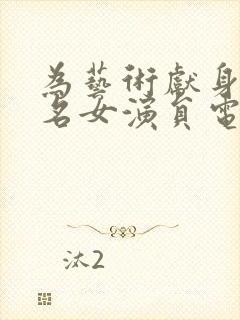 為藝術獻身
名女演員電
汰2